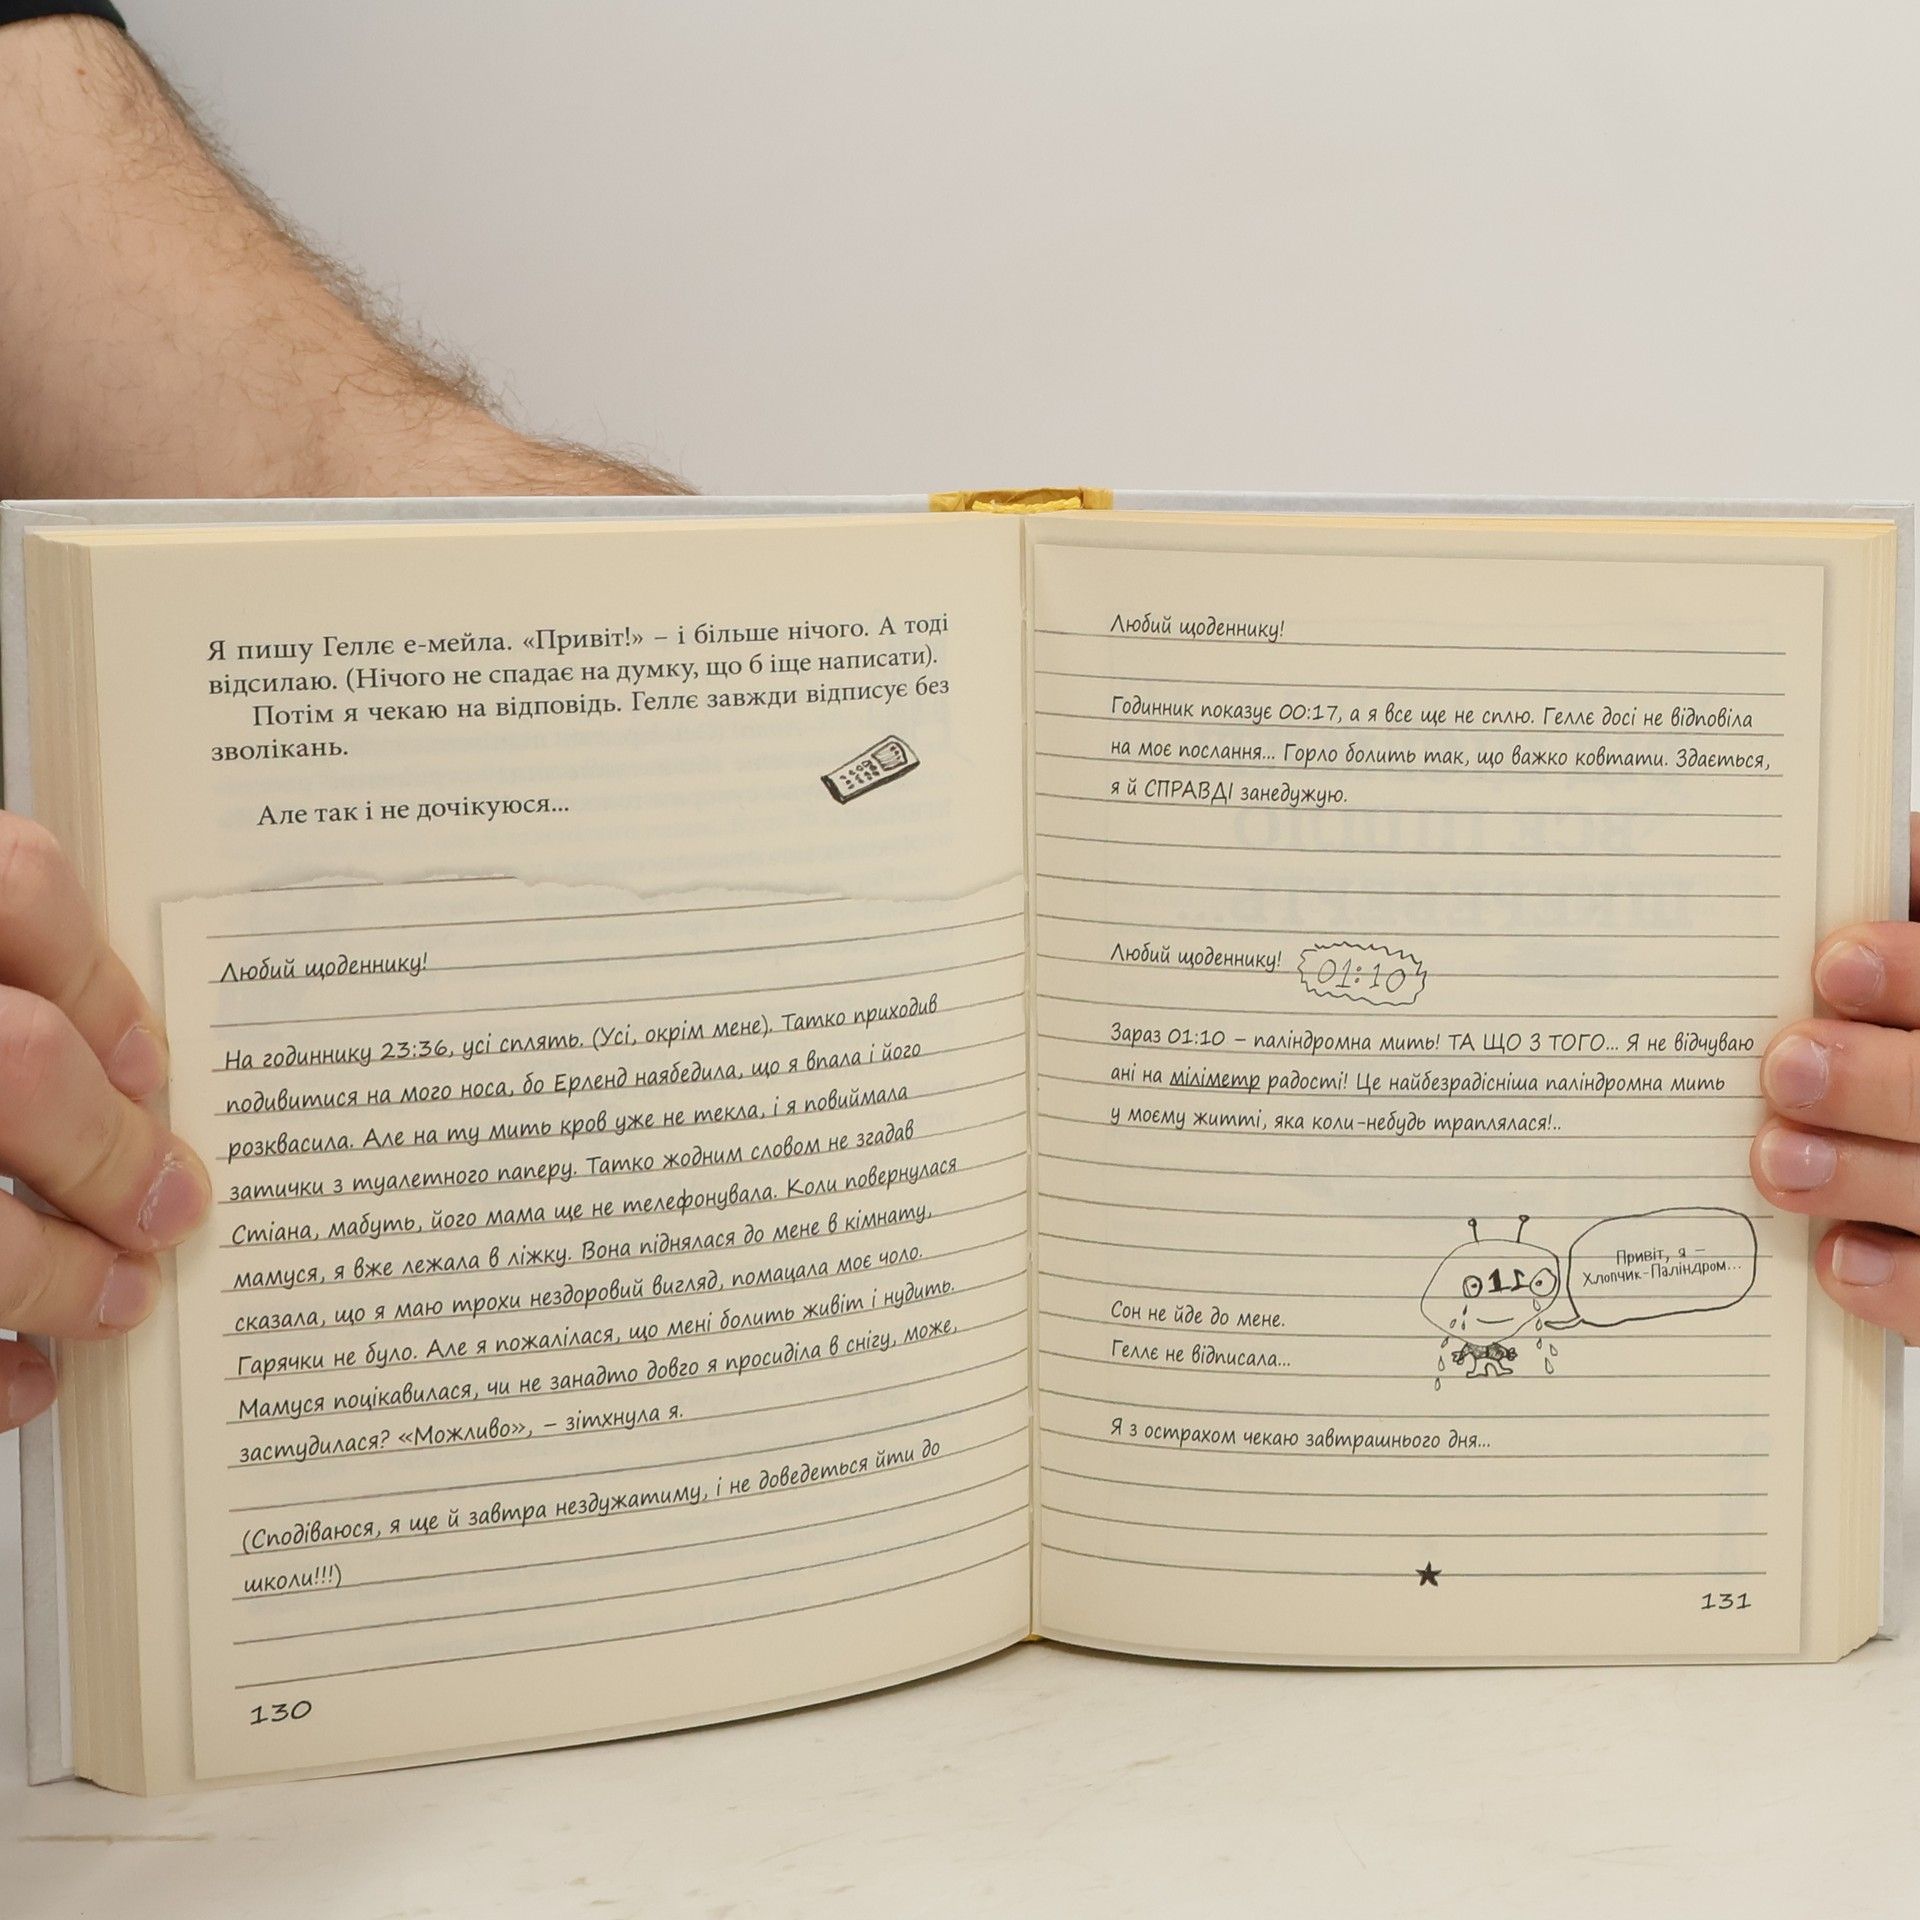 Я пишу Геллє е-мейла. «Привіт!» – і більше нічого. А тоді
відсилаю. (Нічого не спадає на думку, що б іще написати).
Потім я чекаю на відповідь. Геллє завжди відписує без
зволікань.
Але так і не дочікуюся...
Любий щоденнику!
На годиннику 23:36, усі сплять. (Усі, окрім мене). Татко приходив
подивитися на мого носа, бо Ерленд наябедила, що я впала і його
розквасила. Але на ту мить кров уже не текла, і я повиймала
затички з туалетного паперу. Татко жодним словом не згадав
Стіана, мабуть, його мама ще не телефонувала. Коли повернулася
мамуся, я вже лежала в ліжку. Вона піднялася до мене в кімнату,
сказала, що я маю трохи нездоровий вигляд, помацала моє чоло.
Гарячки не було. Але я пожалілася, що мені болить живіт і нудить.
Мамуся поцікавилася, чи не занадто довго я просиділа в снігу, може,
застудилася? «Можливо», – зітхнула я.
(Сподіваюся, я ще й завтра нездужатиму, і не доведеться йти до
школи!!!)
130
Любий щоденнику!
Годинник показує 00:17, а я все ще не сплю. Геллє досі не відповіла
на моє послання... Горло болить так, що важко ковтати. Здається,
я й СПРАВДІ занедужую.
Любий щоденнику! 01:10
Зараз 01:10 – паліндромна мить! ТА ЩО З ТОГО... Я не відчуваю
ані на міліметр радості! Це найбезрадісніша паліндромна мить
у моєму житті, яка коли-небудь траплялася!..
Привіт, я –
Хлопчик-Паліндром...
Сон не йде до мене.
Геллє не відписала...
Я з острахом чекаю завтрашнього дня...
131